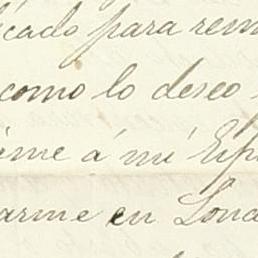 icado para rem
como lo deseo
me á mi Esp
arme en Lond